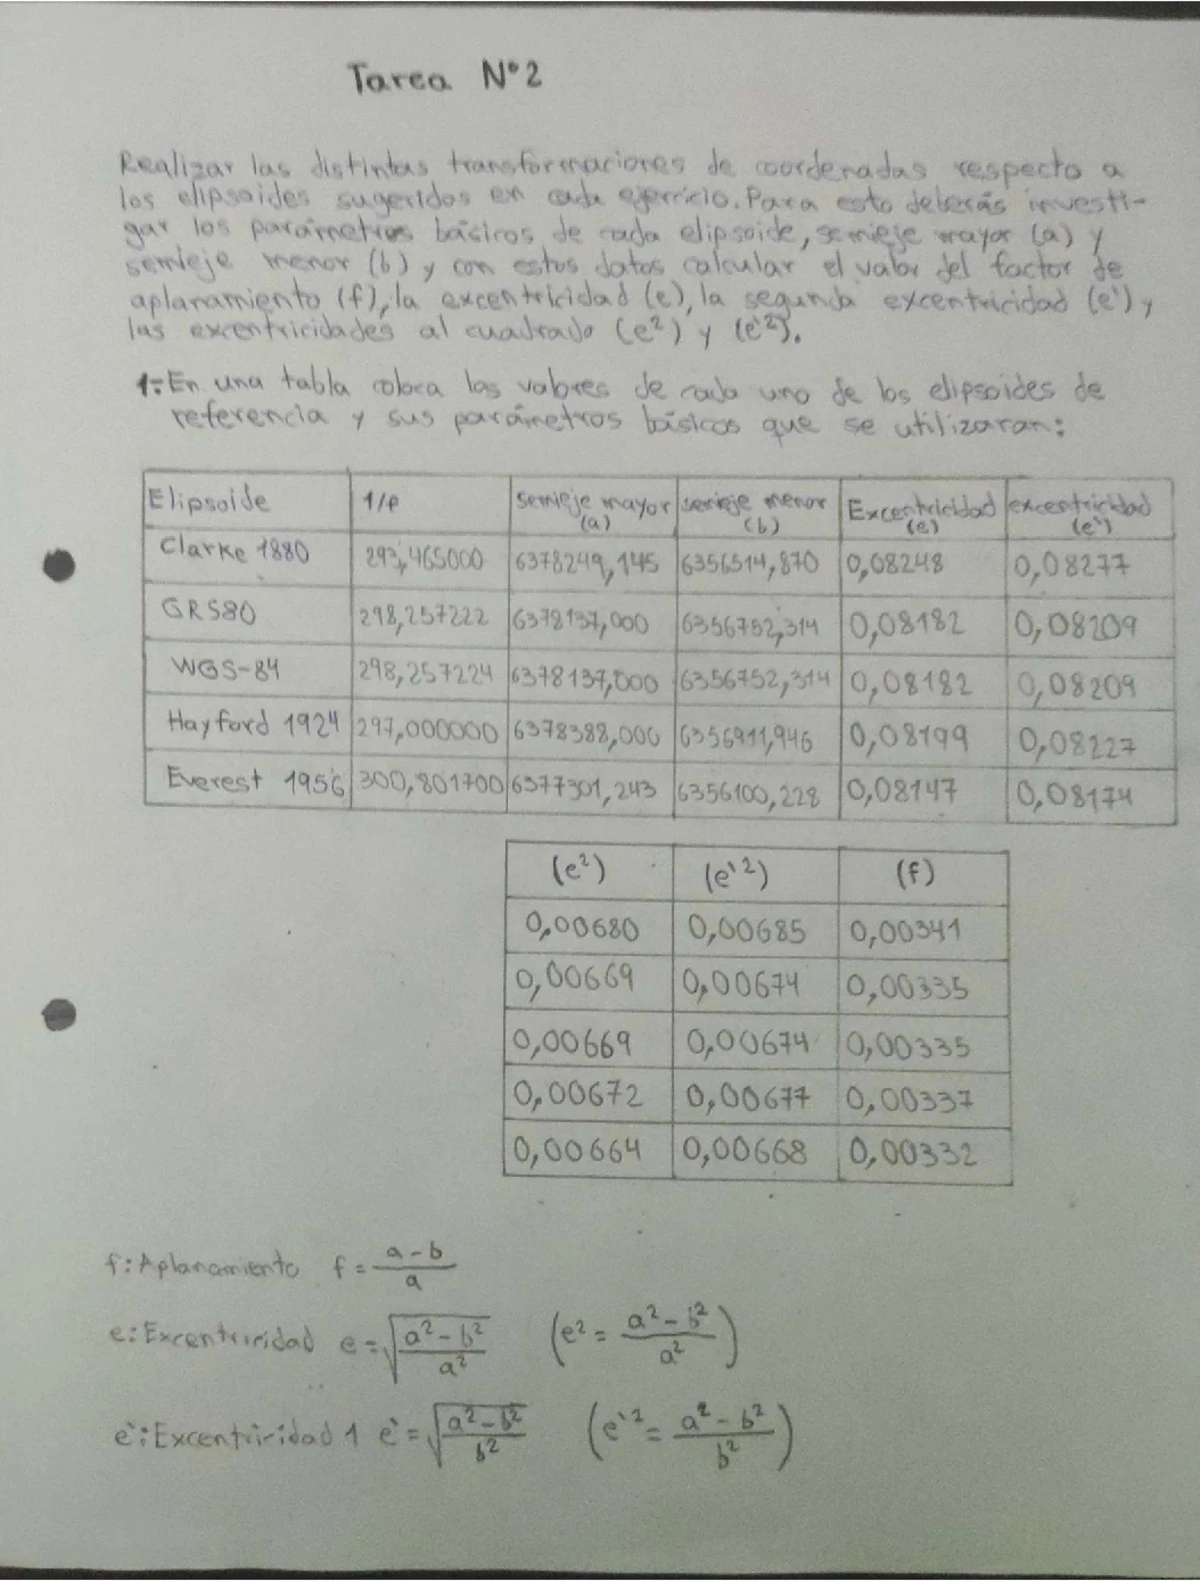 Tarea N°2
Realizar las distintas transformaciones de coordenadas respecto a
los elipsoides sugeridos en cada ejercicio. Para esto deberás investi-
gar los parámetros básicos de cada elipsoide, semieje mayor (a) y
semieje menor (b) y con estos datos calcular el valor del factor de
aplanamiento (f), la excentricidad (e), la segunda excentricidad (e`) y
las excentricidades al cuadrado (e²) y (e`²).
1:En una tabla coloca los valores de cada uno de los elipsoides de
referencia y sus parámetros básicos que se utilizaran:
Elipsoide 1/f semieje mayor (a) semieje menor (b) Excentricidad (e) excentricidad (e`)
Clarke 1880 293,465000 6378249,145 6356514,870 0,08248 0,08277
GRS80 298,257222 6378137,000 6356752,314 0,08182 0,08209
WGS-84 298,257224 6378137,000 6356752,314 0,08182 0,08209
Hayford 1924 297,000000 6378388,000 6356911,946 0,08199 0,08227
Everest 1956 300,801700 6377301,243 6356100,228 0,08147 0,08174
(e²) (e`²) (f)
0,00680 0,00685 0,00341
0,00669 0,00674 0,00335
0,00669 0,00674 0,00335
0,00672 0,00677 0,00337
0,00664 0,00668 0,00332
f:Aplanamiento f = (a-b)/a
e:Excentricidad e = √((a²-b²)/a²) (e² = (a²-b²)/a²)
e`:Excentricidad 1 e` = √((a²-b²)/b²) (e`² = (a²-b²)/b²)